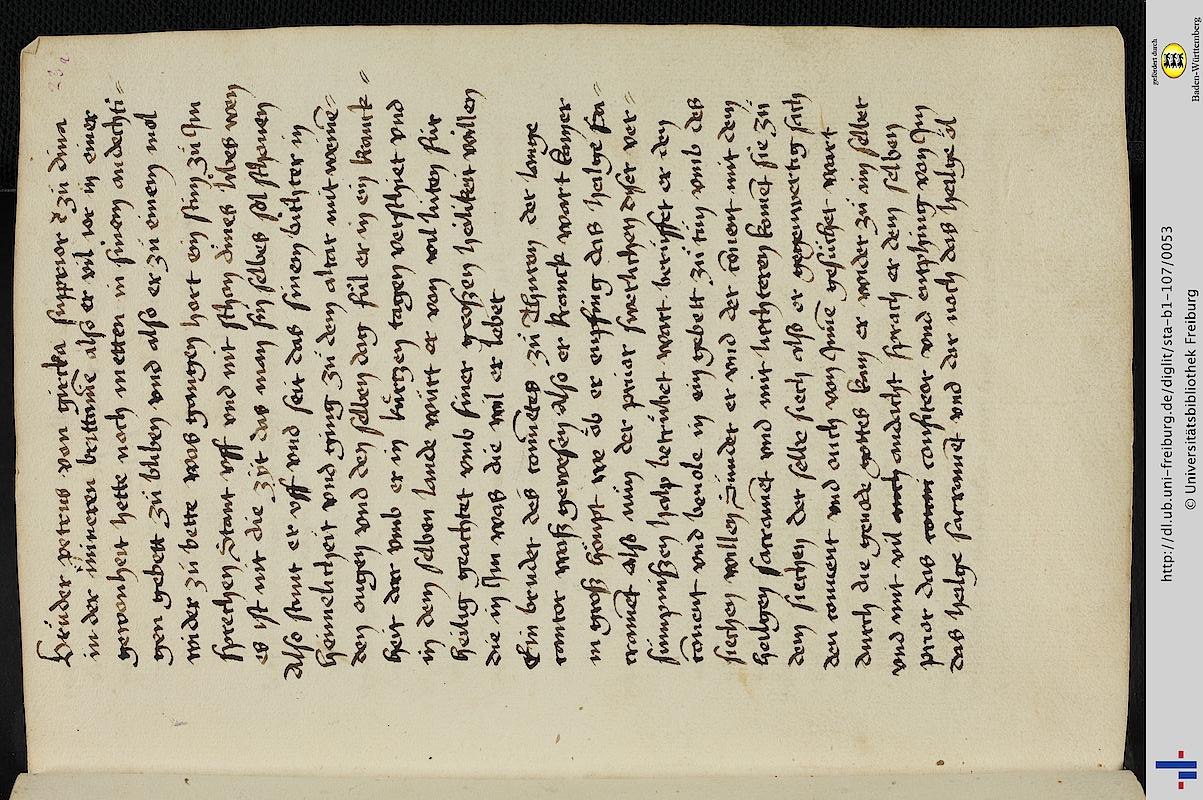 Brüder petrus von girtra supprior zů dina
in der inneren brittanie alß er vil ior in einer
gewonheit hette noch metten in sinem andechti-
gen gebett zů bliben vnd alß er zů einem mol
wider zů bette waß gangen hort er ein stim zů Im
sprechen Stant vff vnd nit schon dineß libeß wen
eß ist nit die zijt daß man sin selbeß sol schonen
Also stunt er vff vnd seit daß sinem bichter in
heimelicheit vnd ging zů dem altar mit weine-
den ougen vnd den selben dag fiel er in ein kranck-
heit dar vmb er in kurtzen tagen verschiet vnd
in dem selben lande wirt er von vil lüten für
heilig geachtet vmb siner grossen heilikeit willen
die in Im waß die wil er lebet
Ein bruder deß conuetes zů der lange
cantor waß gewesen also er kranck wart kam er
in groß we ob er enpfing daß heilge sa-
crament alß nun der prior ver-
halp betrübet wart berüffet er den
conent vnd bevole in ein gebett zů tůn vmb deß
siechen willen Sunder er vnd der conent mit dem
heilgen sacrament vnd mit liechteren koment sie zů
dem siechen der selbe siech alß er gegenwertig sach
den conuent vnd ouch von Inne gesücht wart
durch die genode gotteß kam er wider zů im selber
vnd mit vil andacht sprach er dem selben
prior daß confiteor vnd enpfing von Im
daß heilge sacrament vnd dar noch daß heilge öl
gefördert durch
Baden-Württemberg
http://dl.ub.uni-freiburg.de/diglit/sta-b1-107/0053
© Universitätsbibliothek Freiburg